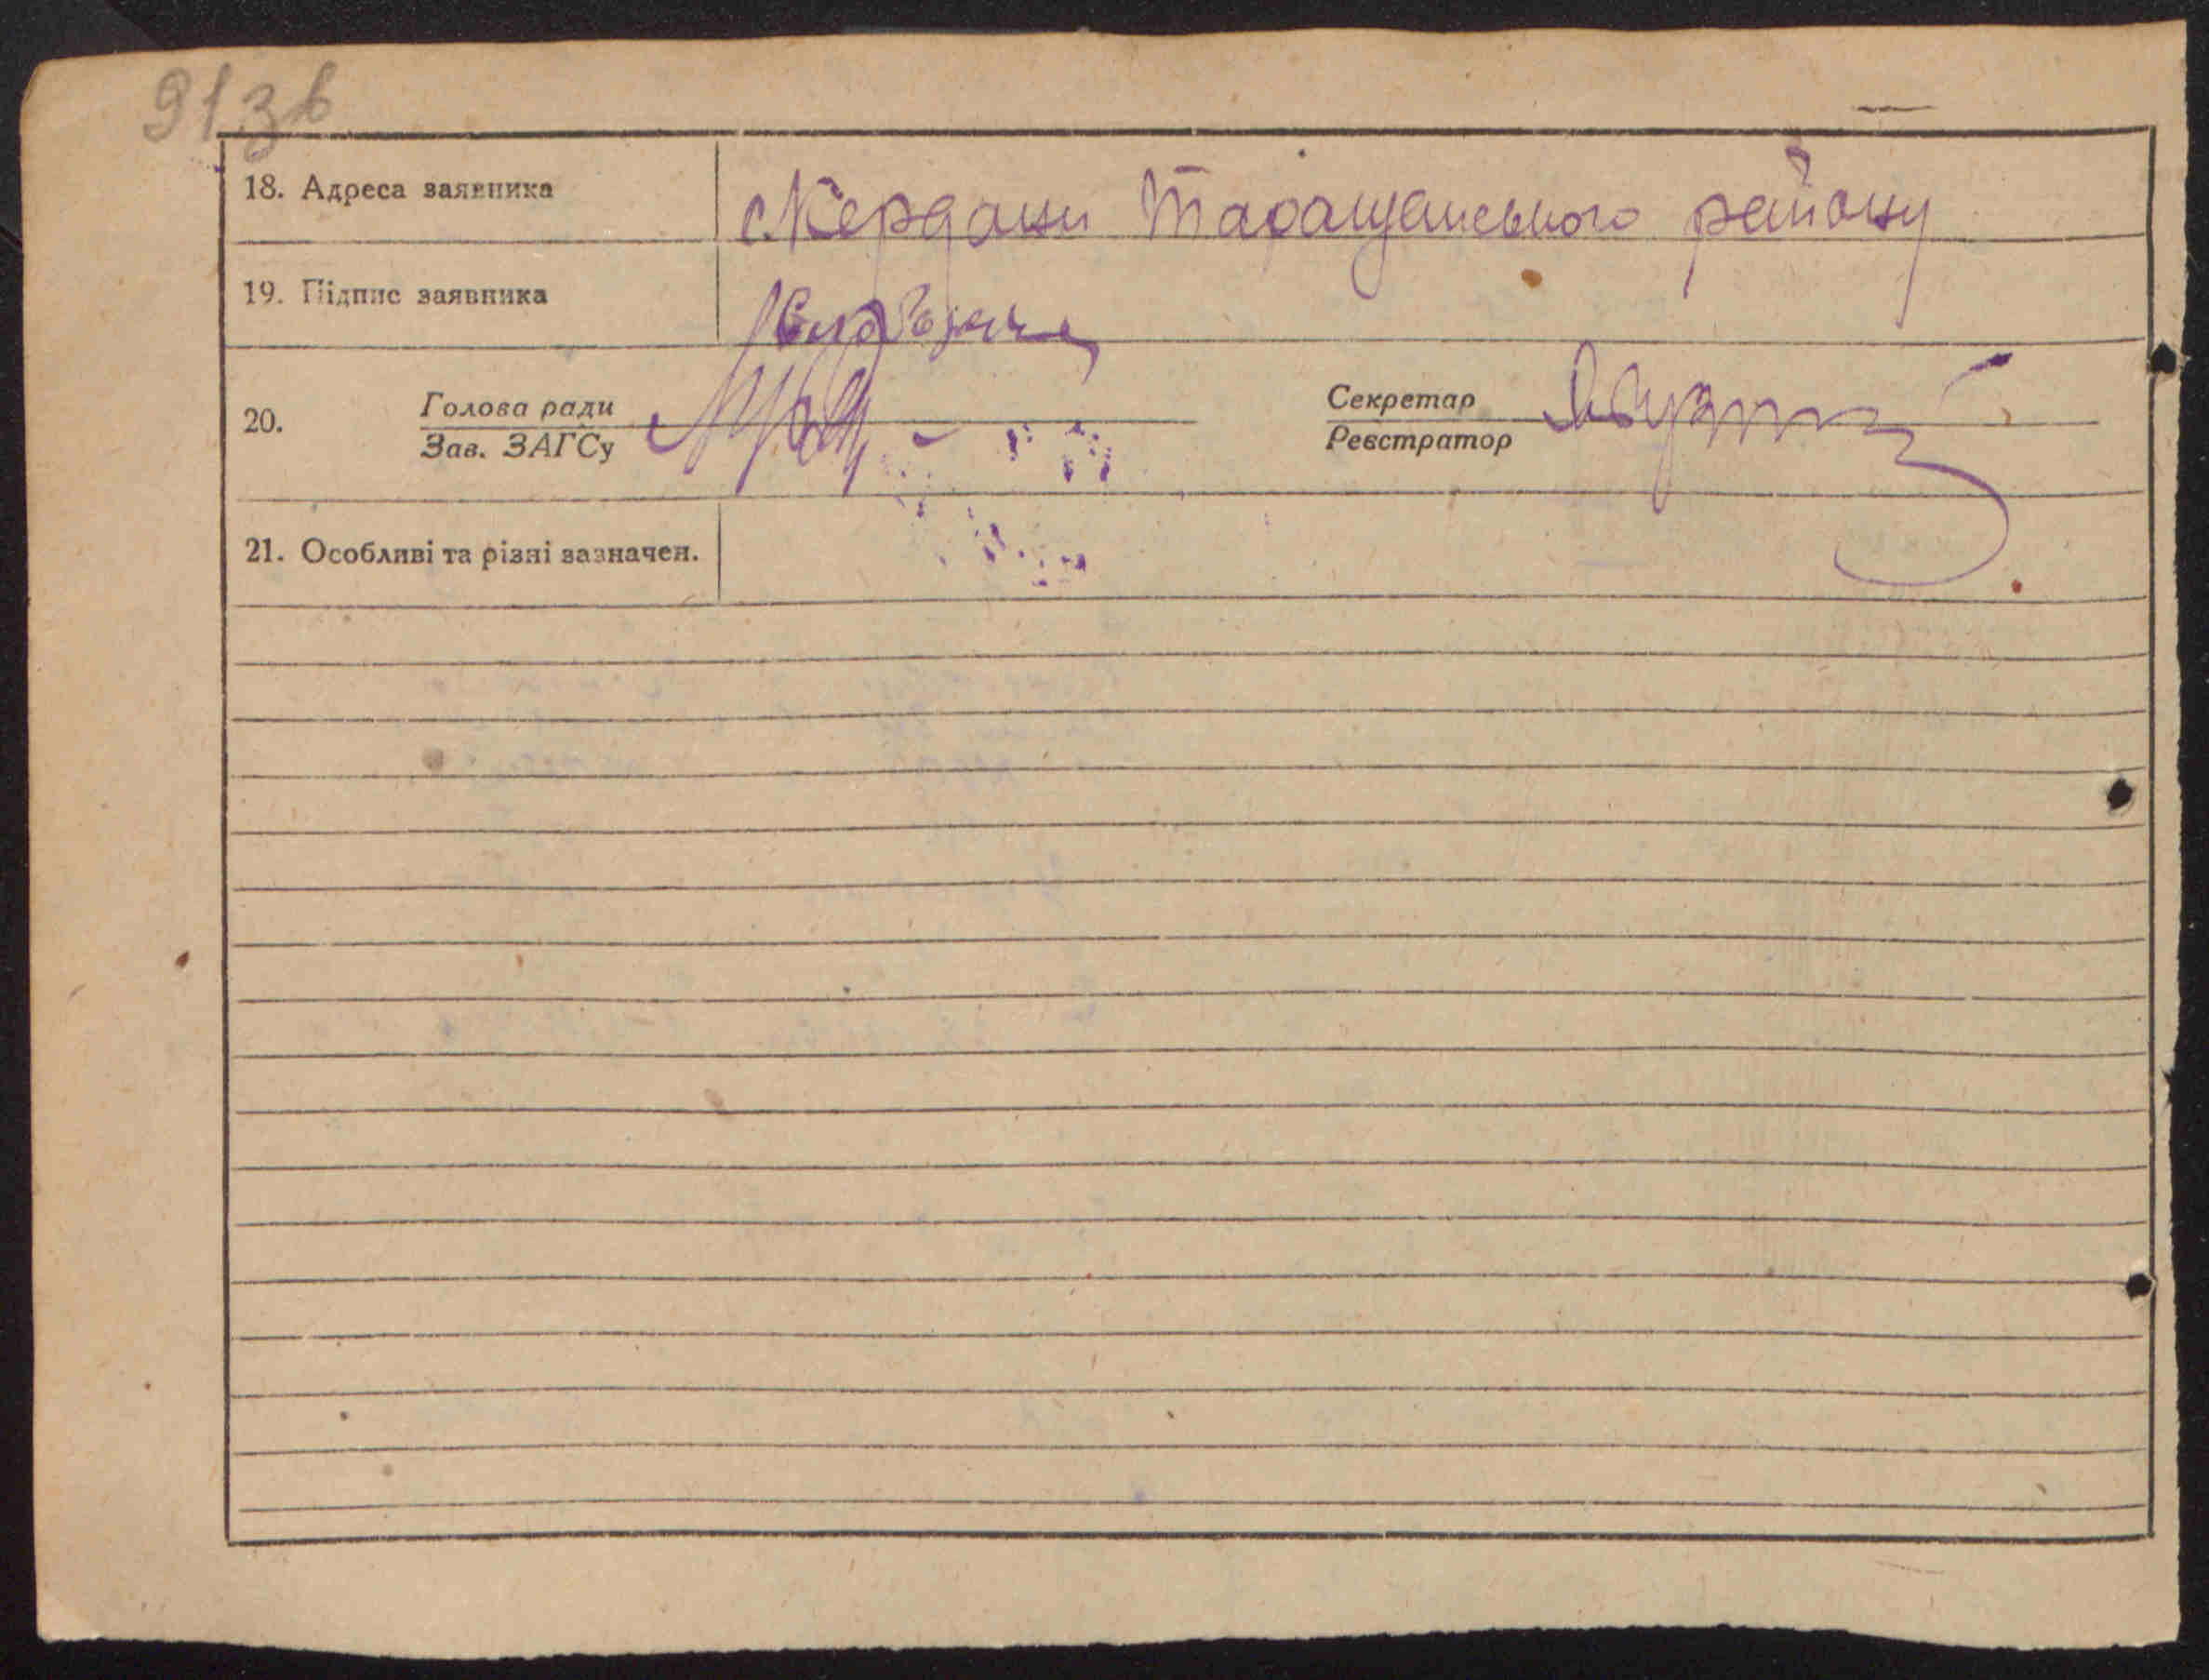 91зв
18. Адреса заявника
с. Кердани Таращанського району
19. Підпис заявника
20. Голова ради
Зав. ЗАГСу
Секретар
Реєстратор
21. Особливі та різні зазначен.